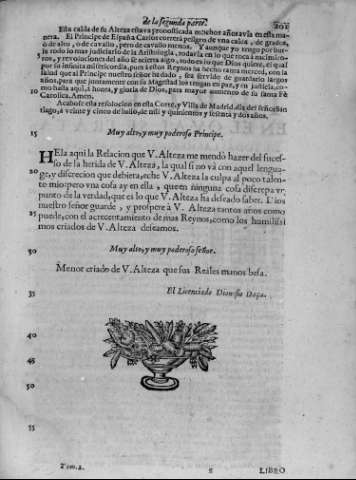 de la segunda parte. 201
Esta caida de su Alteza estava pronosticada muchos años avia en esta ma-
nera. El Principe de España Carlos correrá peligro de vna caida, de gradas,
ò de alto, ò de cavallo, pero de cavallo menos. Y aunque yo tengo por bur-
5 la todo lo mas judiciario de la Astrologia, todavia en lo que toca à nacimien-
tos, y revoluciones del año se acierta algo, todo es lo que Dios quiere, el qual
por su infinita misericordia, pues à estos Reynos ha hecho tanta merced, con la
salud que al Principe nuestro señor ha dado, sea servido de guardarlo largos
años para que con su grandeza estos Reynos tengan en paz, y en justicia, co-
10 mo hasta aqui, à honra, y gloria de Dios, para mayor aumento de su santa Fè
Catolica, Amen.
Acabose esta resolucion en esta Corte, y Villa de Madrid, dia del señor San-
tiago, à veinte y cinco de Iulio, de mil y quinientos y sesenta y dos años.
15 Muy alto, y muy poderoso Principe.
HEla aqui la Relacion que V. Alteza me mendò hazer del suces-
so de la herida de V. Alteza, la qual si no và con aquel lengua-
20 ge, y discrecion que debiera, eche V. Alteza la culpa al poco talen-
to mio, pero vna cosa ay en ella, que en ninguna cosa discrepa vn
punto de la verdad, que es lo que V. Alteza ha deseado saber. Dios
nuestro señor guarde, y prospere à V. Alteza tantos años como
25 puede, con el acrecentamiento de mas Reynos, como los humilissi
mos criados de V. Alteza deseamos.
30 Muy alto, y muy poderoso señor.
Menor criado de V. Alteza que sus Reales manos besa.
35 El Licenciado Dionisio Daça.
40
45
50
55
Tom. 2. LIBRO